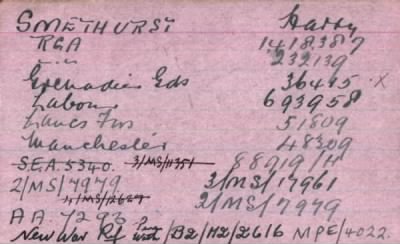 SMETHURST Harry
RGA 1418387
" " 232139
Grenadier Gds 36415 X
Labour 693958
Lancs Fus 51809
Manchester 48309
S.E.A. 5340. 3/MS/11351 88919/H
2/MS/7979 3/MS/17961
4/MS/12689 2/MS/7979
AA. 7293
New War Rf /B2/H2/2616 MPE/4022.